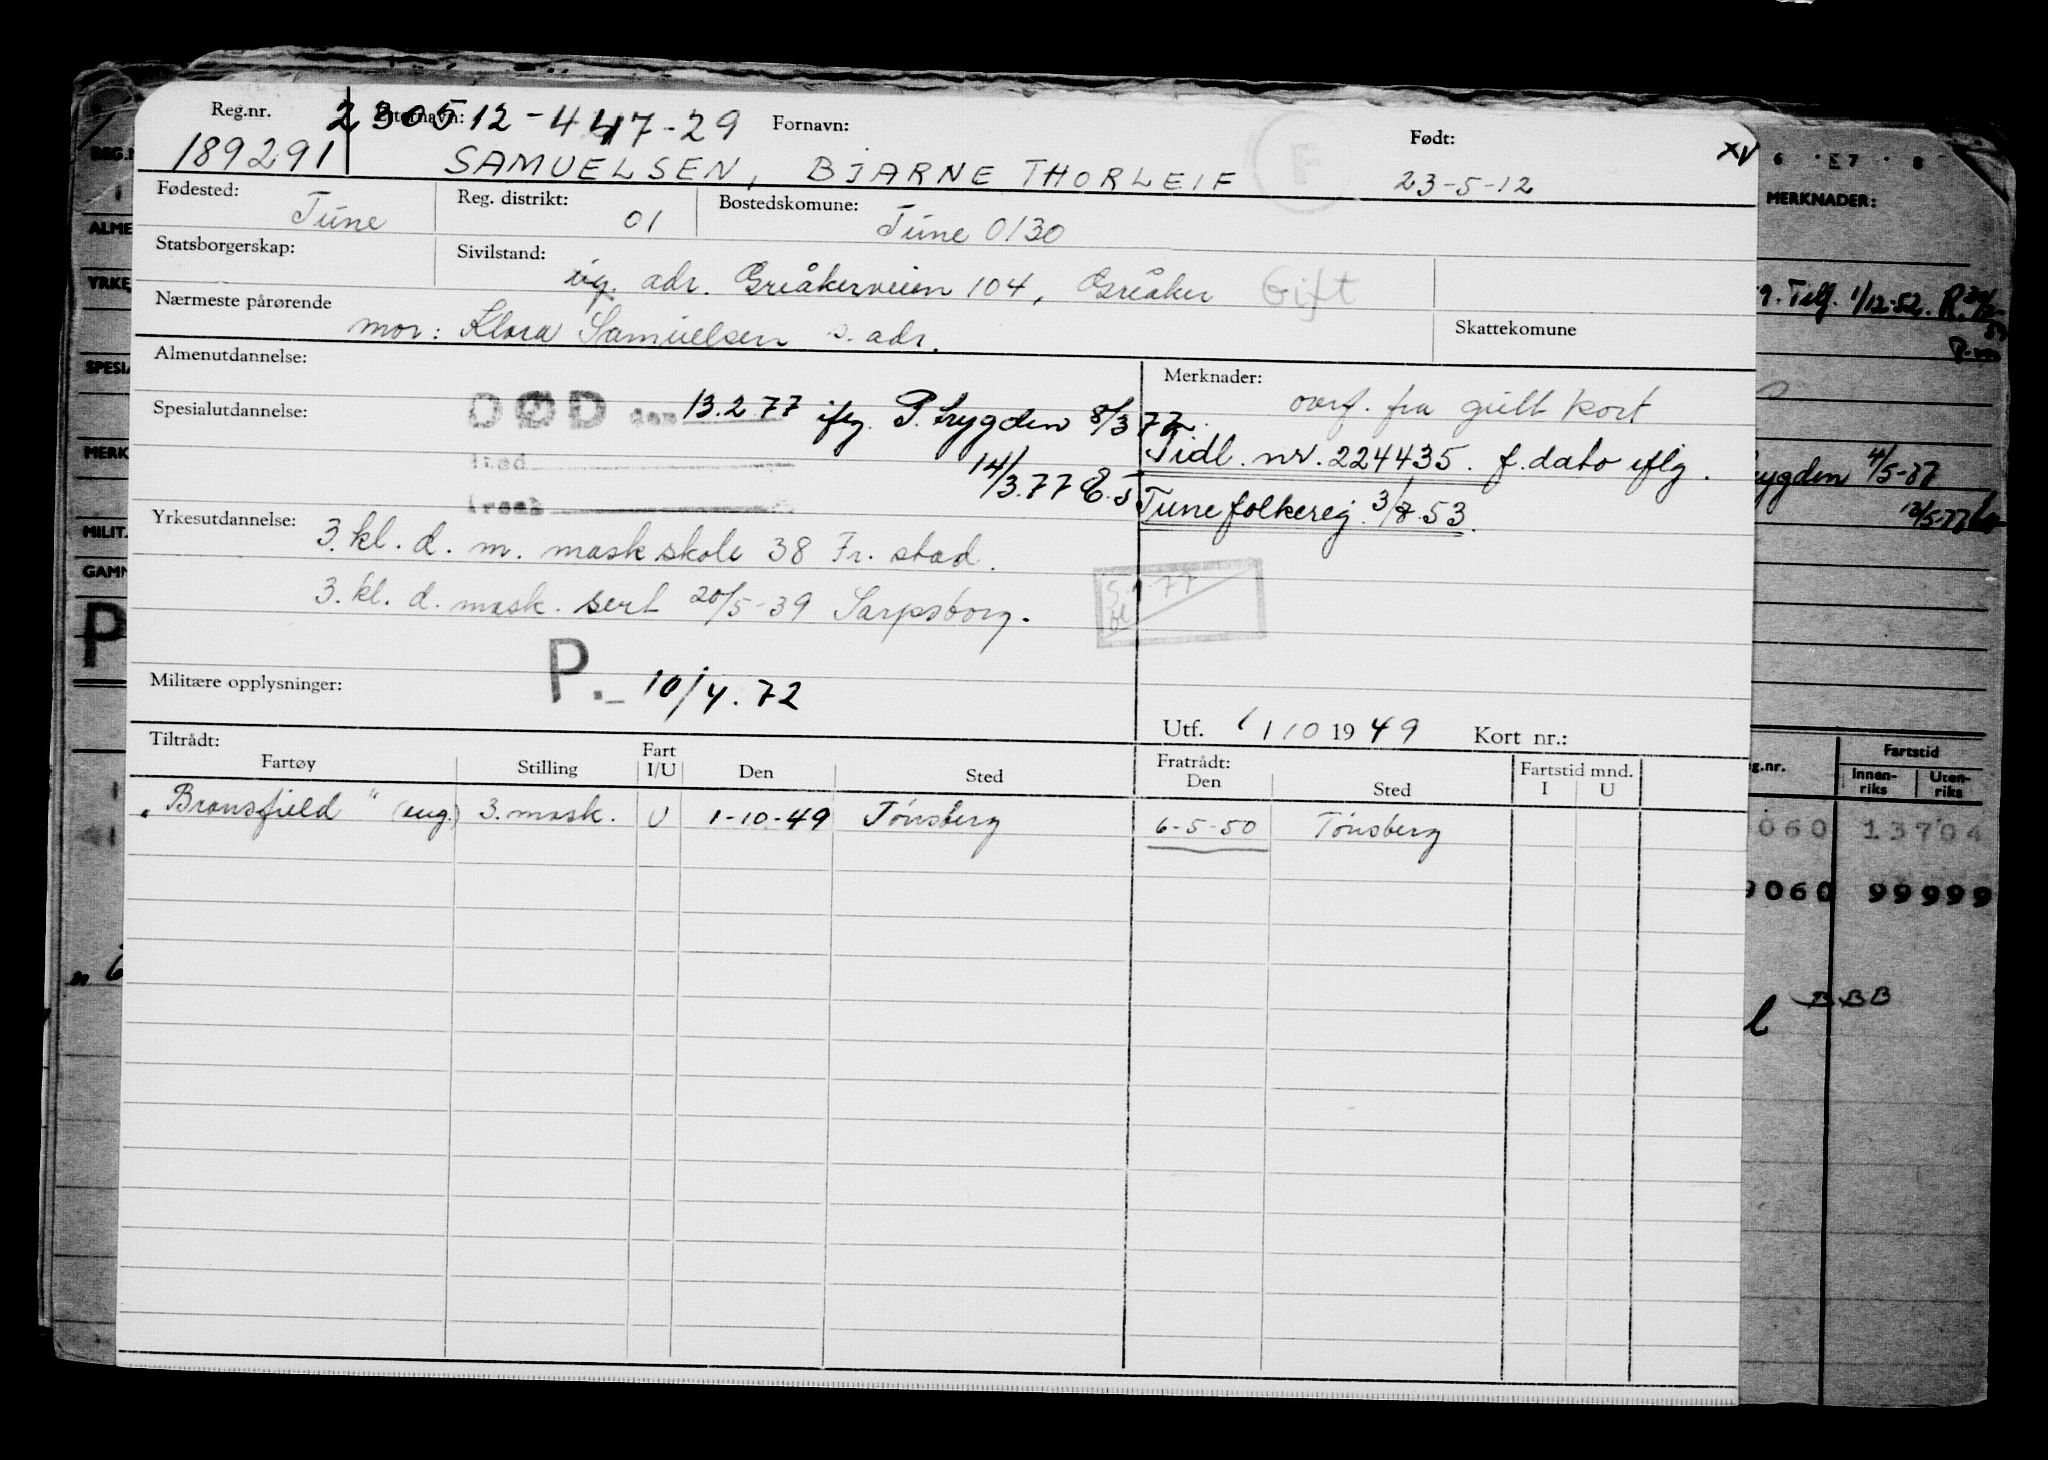 Reg.nr. Etternavn: 230512-447-29 Fornavn: Født:
189291 SAMUELSEN, BJARNE THORLEIF F 23-5-12 XV
Fødested: Tune Reg. distrikt: 01 Bostedskomune: Tune 0130
Statsborgerskap: Sivilstand: ug. adr. Greåkerveien 104, Greåker Gift
Nærmeste pårørende mor: Klara Samuelsen s. adr. Skattekomune
Almenutdannelse: Merknader: overf. fra gult kort
Spesialutdannelse: DØD den 13.2.77 iflg. P. trygden 8/3 77.
Tidl. nr. 224435. f. dato iflg.
14/3.77 E.S
Tune folkereg. 3/8.53.
Yrkesutdannelse: 3. kl. d. m. mask skole 38 Fr. stad.
3. kl. d. mask. sert 20/5-39 Sarpsborg.
5.1.77
Militære opplysninger: P. 10/4.72
Utf. 1/10 1949 Kort nr.:
Tiltrådt: Fratrådt:
Fartøy Stilling Fart I/U Den Sted Den Sted Fartstid mnd. I U
"Bransfield" (eng.) 3. mask. U 1-10-49 Tønsberg 6-5-50 Tønsberg
6 7 8
MERKNADER:
9. Telf. 1/12-52.
trygden 4/5-77
12/5-77
g.nr. Fartstid
Innen-riks Uten-riks
060 13704
9060 99999
BBB
REG.N
ALME
YRKE
SPESIA
MERK
MILIT.
GAMM
P